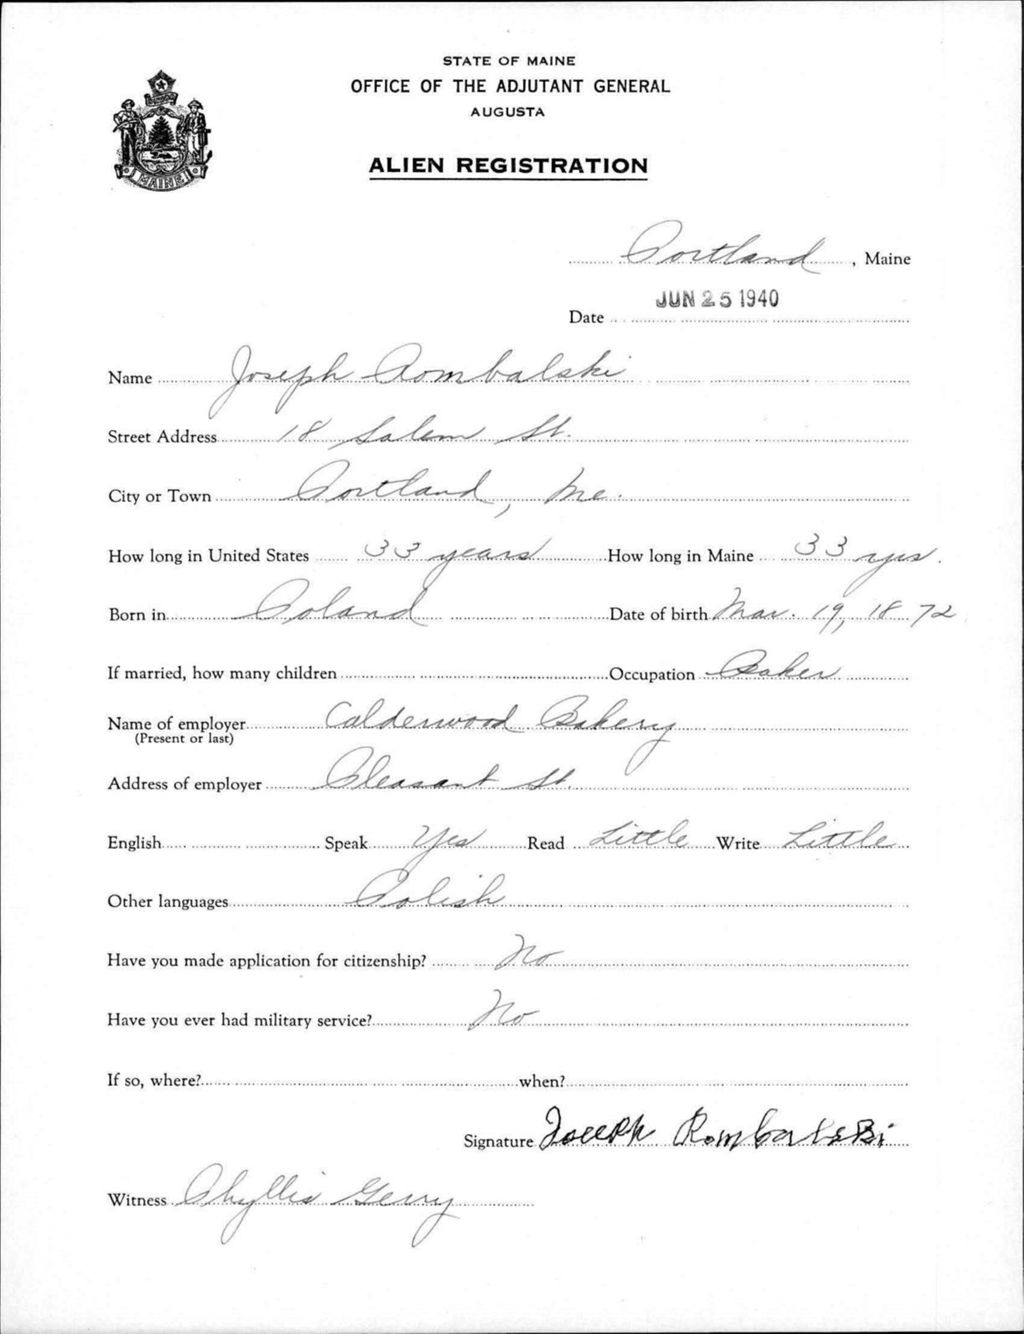 STATE OF MAINE
OFFICE OF THE ADJUTANT GENERAL
AUGUSTA
ALIEN REGISTRATION
MAINE
Portland, Maine
Date JUN 25 1940
Name Joseph Rombalski
Street Address 18 Salem St.
City or Town Portland, Me.
How long in United States 33 years How long in Maine 33 yrs.
Born in Poland Date of birth Mar. 19, 1872
If married, how many children Occupation Baker
Name of employer Calderwood Bakery
(Present or last)
Address of employer Pleasant St.
English Speak Yes Read Little Write Little
Other languages Polish
Have you made application for citizenship? No
Have you ever had military service? No
If so, where? when?
Signature Joseph Rombalski
Witness Phyllis Gerry